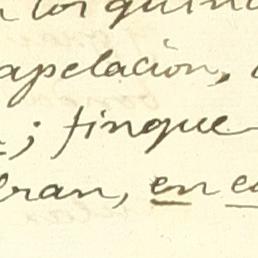 los quin
apelación,
; finque
bran, en